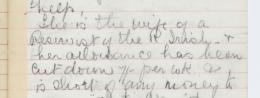 help,
She is the wife of a
Reservist of the R Irish &
her allowance has been
cut down 7/- per wk &
is short of any money to